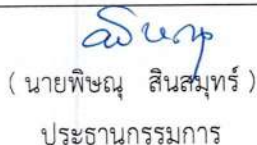 ( นายพิษณุ สินสมุทร์ )
ประธานกรรมการ